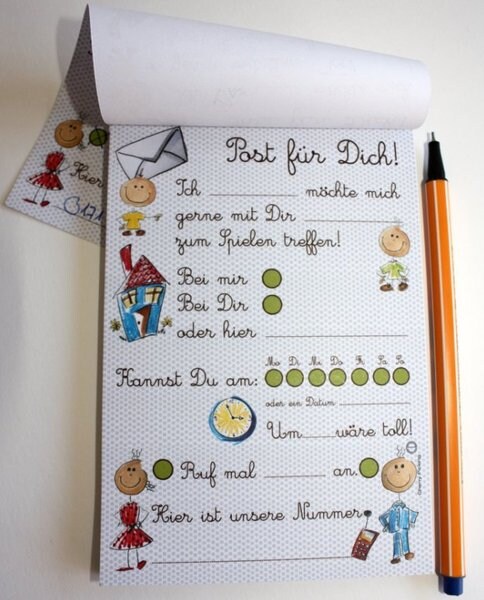 Post für Dich!
Ich ________ möchte mich
gerne mit Dir ________
zum Spielen treffen!
Bei mir
Bei Dir
oder hier ________
Mo Di Mi Do Fr Sa So
Kannst Du am:
oder ein Datum ________
Um____wäre toll!
Ruf mal ______ an.
Hier ist unsere Nummer
Hier